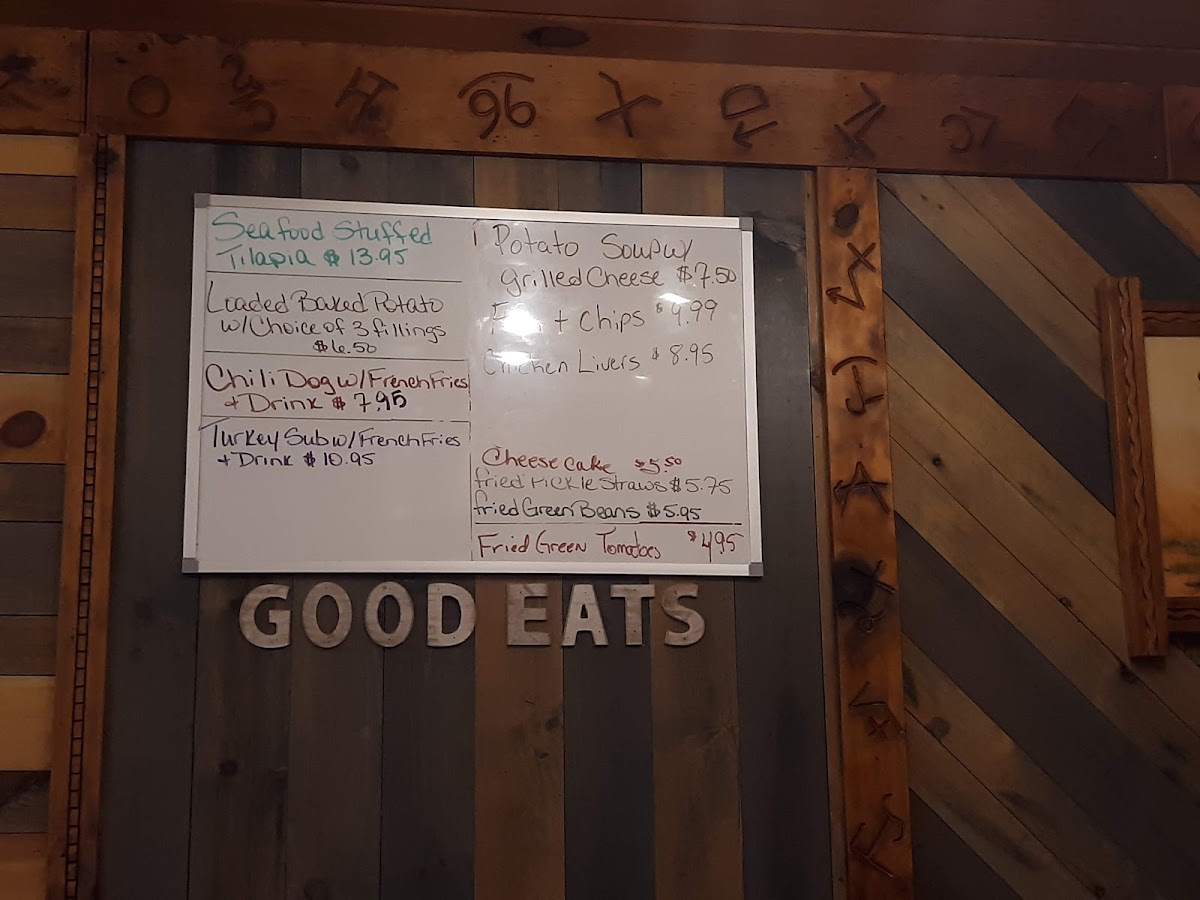 Seafood Stuffed
Tilapia $ 13.95
Loaded Baked Potato
w/Choice of 3 fillings
$6.50
Chili Dog w/French Fries
+ Drink $ 7.95
Turkey Sub w/French Fries
+ Drink $ 10.95
Potato Soup w/
grilled Cheese $7.50
+ Chips $9.99
Chicken Livers $ 8.95
Cheese cake $5.50
fried Pickle Straws $5.75
fried Green Beans $5.95
Fried Green Tomatoes $4.95
GOOD EATS